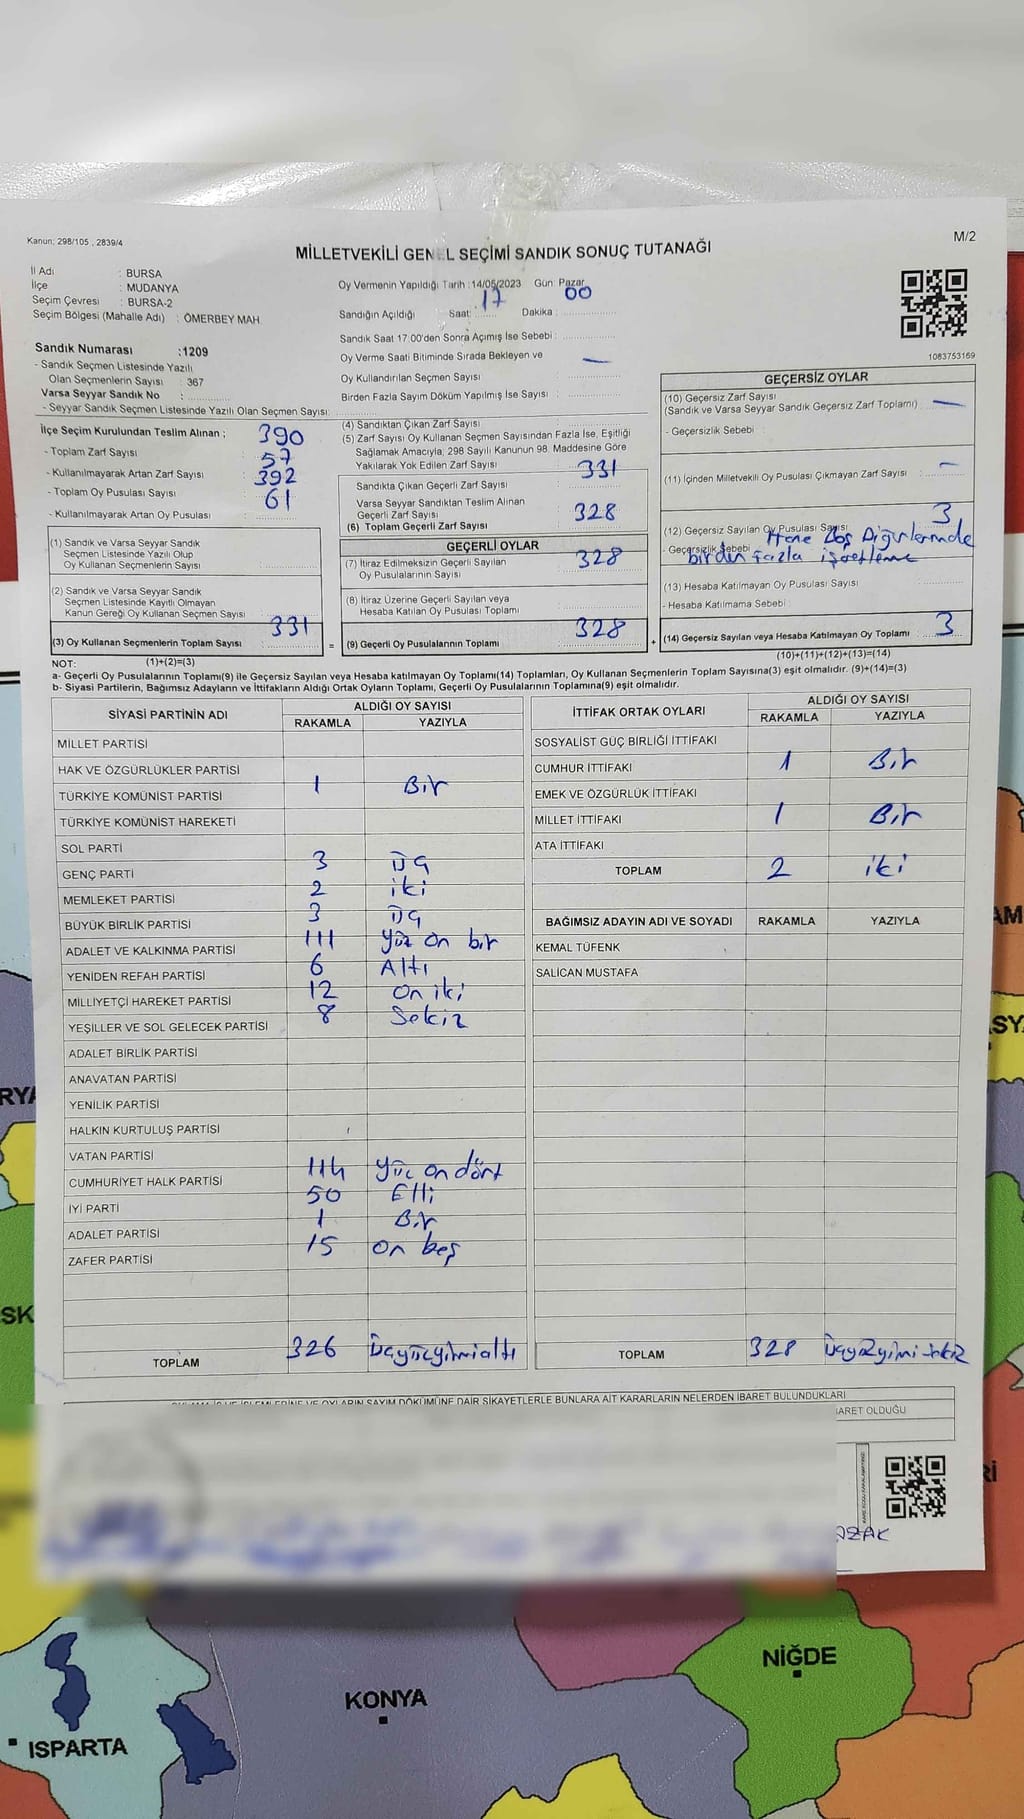 Kanun; 298/105 , 2839/4
M/2
MİLLETVEKİLİ GENEL SEÇİMİ SANDIK SONUÇ TUTANAĞI
İl Adı : BURSA
İlçe : MUDANYA
Seçim Çevresi : BURSA-2
Seçim Bölgesi (Mahalle Adı) : ÖMERBEY MAH.
Sandık Numarası :1209
- Sandık Seçmen Listesinde Yazılı
Olan Seçmenlerin Sayısı : 367
Varsa Seyyar Sandık No :
- Seyyar Sandık Seçmen Listesinde Yazılı Olan Seçmen Sayısı:
Oy Vermenin Yapıldığı Tarih :14/05/2023 Gün: Pazar
Sandığın Açıldığı Saat: 17 Dakika : 00
Sandık Saat 17.00'den Sonra Açımış İse Sebebi :
Oy Verme Saati Bitiminde Sırada Bekleyen ve —
Oy Kullandırılan Seçmen Sayısı :
Birden Fazla Sayım Döküm Yapılmış İse Sayısı :
1083753169
İlçe Seçim Kurulundan Teslim Alınan ; 390
- Toplam Zarf Sayısı : 57
- Kullanılmayarak Artan Zarf Sayısı : 392
- Toplam Oy Pusulası Sayısı : 61
- Kullanılmayarak Artan Oy Pusulası :
(1) Sandık ve Varsa Seyyar Sandık
Seçmen Listesinde Yazılı Olup
Oy Kullanan Seçmenlerin Sayısı
(2) Sandık ve Varsa Seyyar Sandık
Seçmen Listesinde Kayıtlı Olmayan
Kanun Gereği Oy Kullanan Seçmen Sayısı
331
(3) Oy Kullanan Seçmenlerin Toplam Sayısı =
(4) Sandıktan Çıkan Zarf Sayısı
(5) Zarf Sayısı Oy Kullanan Seçmen Sayısından Fazla İse, Eşitliği
Sağlamak Amacıyla; 298 Sayılı Kanunun 98. Maddesine Göre
Yakılarak Yok Edilen Zarf Sayısı
331
Sandıkta Çıkan Geçerli Zarf Sayısı
Varsa Seyyar Sandıktan Teslim Alınan
Geçerli Zarf Sayısı
328
(6) Toplam Geçerli Zarf Sayısı
GEÇERLİ OYLAR
328
(7) İtiraz Edilmeksizin Geçerli Sayılan
Oy Pusulalarının Sayısı
(8) İtiraz Üzerine Geçerli Sayılan veya
Hesaba Katılan Oy Pusulası Toplamı
328
(9) Geçerli Oy Pusulalarının Toplamı +
GEÇERSİZ OYLAR
(10) Geçersiz Zarf Sayısı
(Sandık ve Varsa Seyyar Sandık Geçersiz Zarf Toplamı) —
- Geçersizlik Sebebi :
(11) İçinden Milletvekili Oy Pusulası Çıkmayan Zarf Sayısı —
3
(12) Geçersiz Sayılan Oy Pusulası Sayısı
- Geçersizlik Sebebi Boş Diğerlerinde
birden fazla işaretleme
(13) Hesaba Katılmayan Oy Pusulası Sayısı
- Hesaba Katılmama Sebebi :
(14) Geçersiz Sayılan veya Hesaba Katılmayan Oy Toplamı 3
(10)+(11)+(12)+(13)=(14)
NOT: (1)+(2)=(3)
a- Geçerli Oy Pusulalarının Toplamı(9) ile Geçersiz Sayılan veya Hesaba katılmayan Oy Toplamı(14) Toplamları, Oy Kullanan Seçmenlerin Toplam Sayısına(3) eşit olmalıdır. (9)+(14)=(3)
b- Siyasi Partilerin, Bağımsız Adayların ve İttifakların Aldığı Ortak Oyların Toplamı, Geçerli Oy Pusulalarının Toplamına(9) eşit olmalıdır.
SİYASİ PARTİNİN ADI ALDIĞI OY SAYISI
RAKAMLA YAZIYLA
MİLLET PARTİSİ
HAK VE ÖZGÜRLÜKLER PARTİSİ
TÜRKİYE KOMÜNİST PARTİSİ 1 Bir
TÜRKİYE KOMÜNİST HAREKETİ
SOL PARTİ
GENÇ PARTİ 3 Üç
MEMLEKET PARTİSİ 2 iki
BÜYÜK BİRLİK PARTİSİ 3 Üç
ADALET VE KALKINMA PARTİSİ 111 yüz on bir
YENİDEN REFAH PARTİSİ 6 Altı
MİLLİYETÇİ HAREKET PARTİSİ 12 On iki
YEŞİLLER VE SOL GELECEK PARTİSİ 8 Sekiz
ADALET BİRLİK PARTİSİ
ANAVATAN PARTİSİ
YENİLİK PARTİSİ
HALKIN KURTULUŞ PARTİSİ
VATAN PARTİSİ
CUMHURİYET HALK PARTİSİ 114 yüz on dört
İYİ PARTİ 50 Elli
ADALET PARTİSİ 1 Bir
ZAFER PARTİSİ 15 on beş
TOPLAM 326 üçyüzyirmialtı
İTTİFAK ORTAK OYLARI ALDIĞI OY SAYISI
RAKAMLA YAZIYLA
SOSYALİST GÜÇ BİRLİĞİ İTTİFAKI
CUMHUR İTTİFAKI 1 Bir
EMEK VE ÖZGÜRLÜK İTTİFAKI
MİLLET İTTİFAKI 1 Bir
ATA İTTİFAKI
TOPLAM 2 iki
BAĞIMSIZ ADAYIN ADI VE SOYADI RAKAMLA YAZIYLA
KEMAL TÜFENK
SALİCAN MUSTAFA
TOPLAM 328 üçyüzyirmi sekiz
DÖKÜMÜNE DAİR ŞİKAYETLERLE BUNLARA AİT KARARLARIN NELERDEN İBARET BULUNDUKLARI
OLDUĞU
KONYA
NİĞDE
ISPARTA